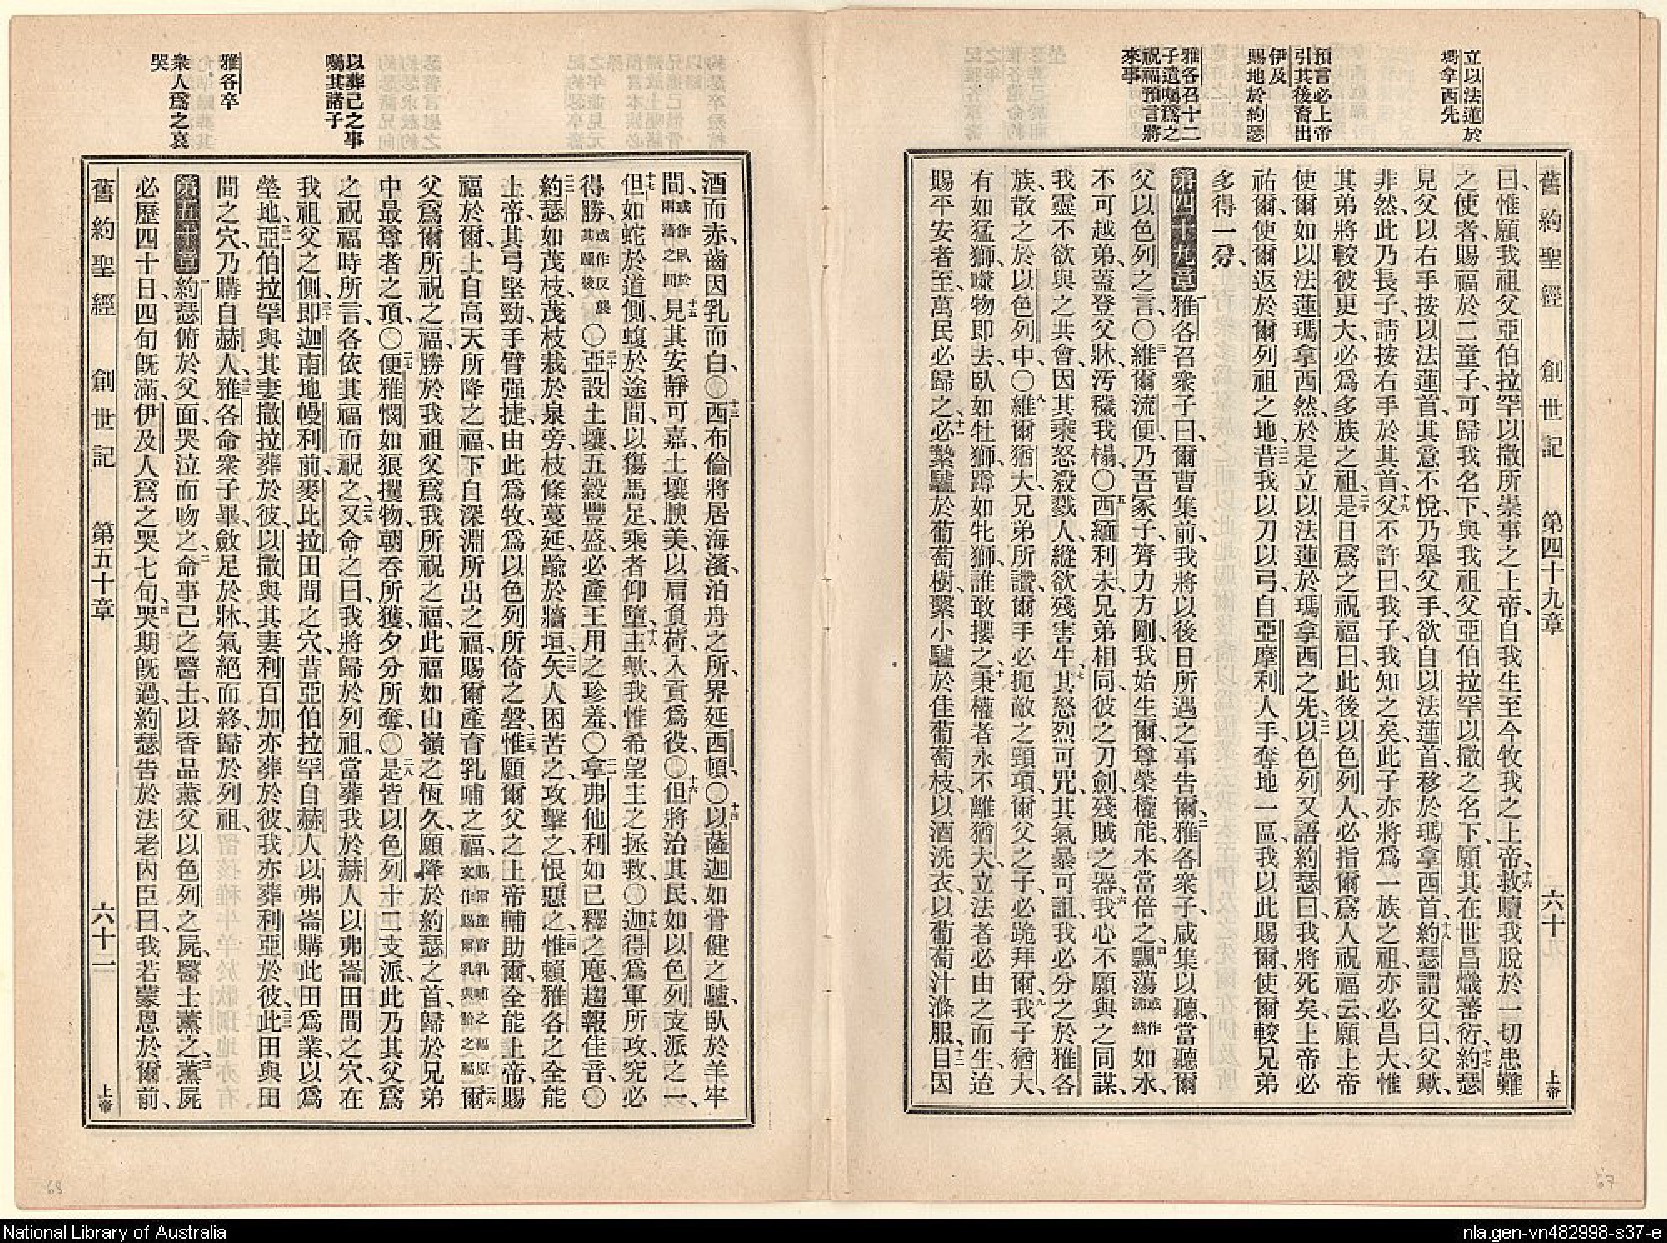 立以法蓮於
瑪拿西先
預言必上帝
引其後裔出
伊及
賜地於約瑟
雅各召十二
子遺囑爲之
祝福預言將
來事
舊約聖經 創世記 第四十九章 六十 上帝
曰、惟願我祖父亞伯拉罕以撒所崇事之上帝、自我生至今牧我之上帝、救贖我脫於一切患難
之使者、賜福於二童子、可歸我名下、與我祖父亞伯拉罕以撒之名下、願其在世昌熾蕃衍、約瑟
見父以右手按以法蓮首、其意不悅、乃舉父手、欲自以法蓮首、移於瑪拿西首、約瑟謂父曰、父歟、
非然、此乃長子、請按右手於其首、父不許、曰、我子、我知之矣、此子亦將爲一族之祖、亦必昌大、惟
其弟將較彼更大、必爲多族之祖、是日爲之祝福曰、此後以色列人、必指爾爲人祝福云、願上帝
使爾如以法蓮瑪拿西然、於是立以法蓮於瑪拿西之先、以色列又語約瑟曰、我將死矣、上帝必
祐爾、使爾返於爾列祖之地、昔我以刀以弓、自亞摩利人手、奪地一區、我以此賜爾、使爾較兄弟
多得一分、
第四十九章 雅各召衆子曰、爾曹集前、我將以後日所遇之事告爾、雅各衆子、咸集以聽、當聽爾
父以色列之言、〇維爾流便、乃吾冢子、膂力方剛、我始生爾、尊榮權能、本當倍之、飄蕩或作沸然如水、
不可越弟、蓋登父牀、汚穢我榻、〇西緬利未兄弟相同、彼之刀劍、殘賊之器、我心不願與之同謀、
我靈不欲與之共會、因其乘怒殺戮人、縱欲殘害牛、其怒烈可咒、其氣暴可詛、我必分之於雅各
族、散之於以色列中、〇維爾猶大、兄弟所讚、爾手必扼敵之頸項、爾父之子、必跪拜爾、我子猶大、
有如猛獅、囓物卽去、臥如牡獅、蹲如牝獅、誰敢攖之、秉權者永不離猶大、立法者必由之而生、迨
賜平安者至、萬民必歸之、必縶驢於葡萄樹、繫小驢於佳葡萄枝、以酒洗衣、以葡萄汁滌服、目因
以葬己之事
囑其諸子
雅各卒
衆人爲之哀
哭
酒而赤、齒因乳而白、〇西布倫將居海濱、泊舟之所、界延西頓、〇以薩迦如骨健之驢、臥於羊牢
間、或作臥於兩犢之間見其安靜可嘉、土壤腴美、以肩負荷、入貢爲役、〇但將治其民、如以色列支派之一、
但如蛇於道側、蝮於途間、以傷馬足、乘者仰墮、主歟、我惟希望主之拯救、〇迦得爲軍所攻、究必
得勝、或作反襲其厥後〇亞設土壤、五穀豐盛、必產王用之珍羞、〇拿弗他利如已釋之麀、趨報佳音、〇
約瑟如茂枝、茂枝栽於泉旁、枝條蔓延、踰於牆垣、矢人困苦之、攻擊之、恨惡之、惟賴雅各之全能
上帝、其弓堅勁、手臂强捷、由此爲牧、爲以色列所倚之磐、惟願爾父之上帝輔助爾、全能上帝賜
福於爾、上自高天所降之福、下自深淵所出之福、賜爾產育乳哺之福、賜爾產育乳哺之福原文作賜爾乳與胎之福爾
父爲爾所祝之福、勝於我祖父爲我所祝之福、此福如山嶺之恆久、願降於約瑟之首、歸於兄弟
中最尊者之項、〇便雅憫如狼攫物、朝吞所獲、夕分所奪、〇是皆以色列十二支派、此乃其父爲
之祝福時所言、各依其福而祝之、又命之曰、我將歸於列祖、當葬我於赫人以弗崙田間之穴、在
我祖父之側、卽迦南地幔利前、麥比拉田間之穴、昔亞伯拉罕自赫人以弗崙購此田爲業、以爲
塋地、亞伯拉罕與其妻撒拉葬於彼、以撒與其妻利百加亦葬於彼、我亦葬利亞於彼、此田與田
間之穴、乃購自赫人、雅各命衆子畢、斂足於牀、氣絕而終、歸於列祖、
第五十章 約瑟俯於父面、哭泣而吻之、命事己之醫士、以香品薰父以色列之屍、醫士薰之、薰屍
必歷四十日、四旬旣滿、伊及人爲之哭七旬、哭期旣過、約瑟告於法老內臣曰、我若蒙恩於爾前、
舊約聖經 創世記 第五十章 六十一 上帝
68
67
National Library of Australia
nla.gen-vn482998-s37-e